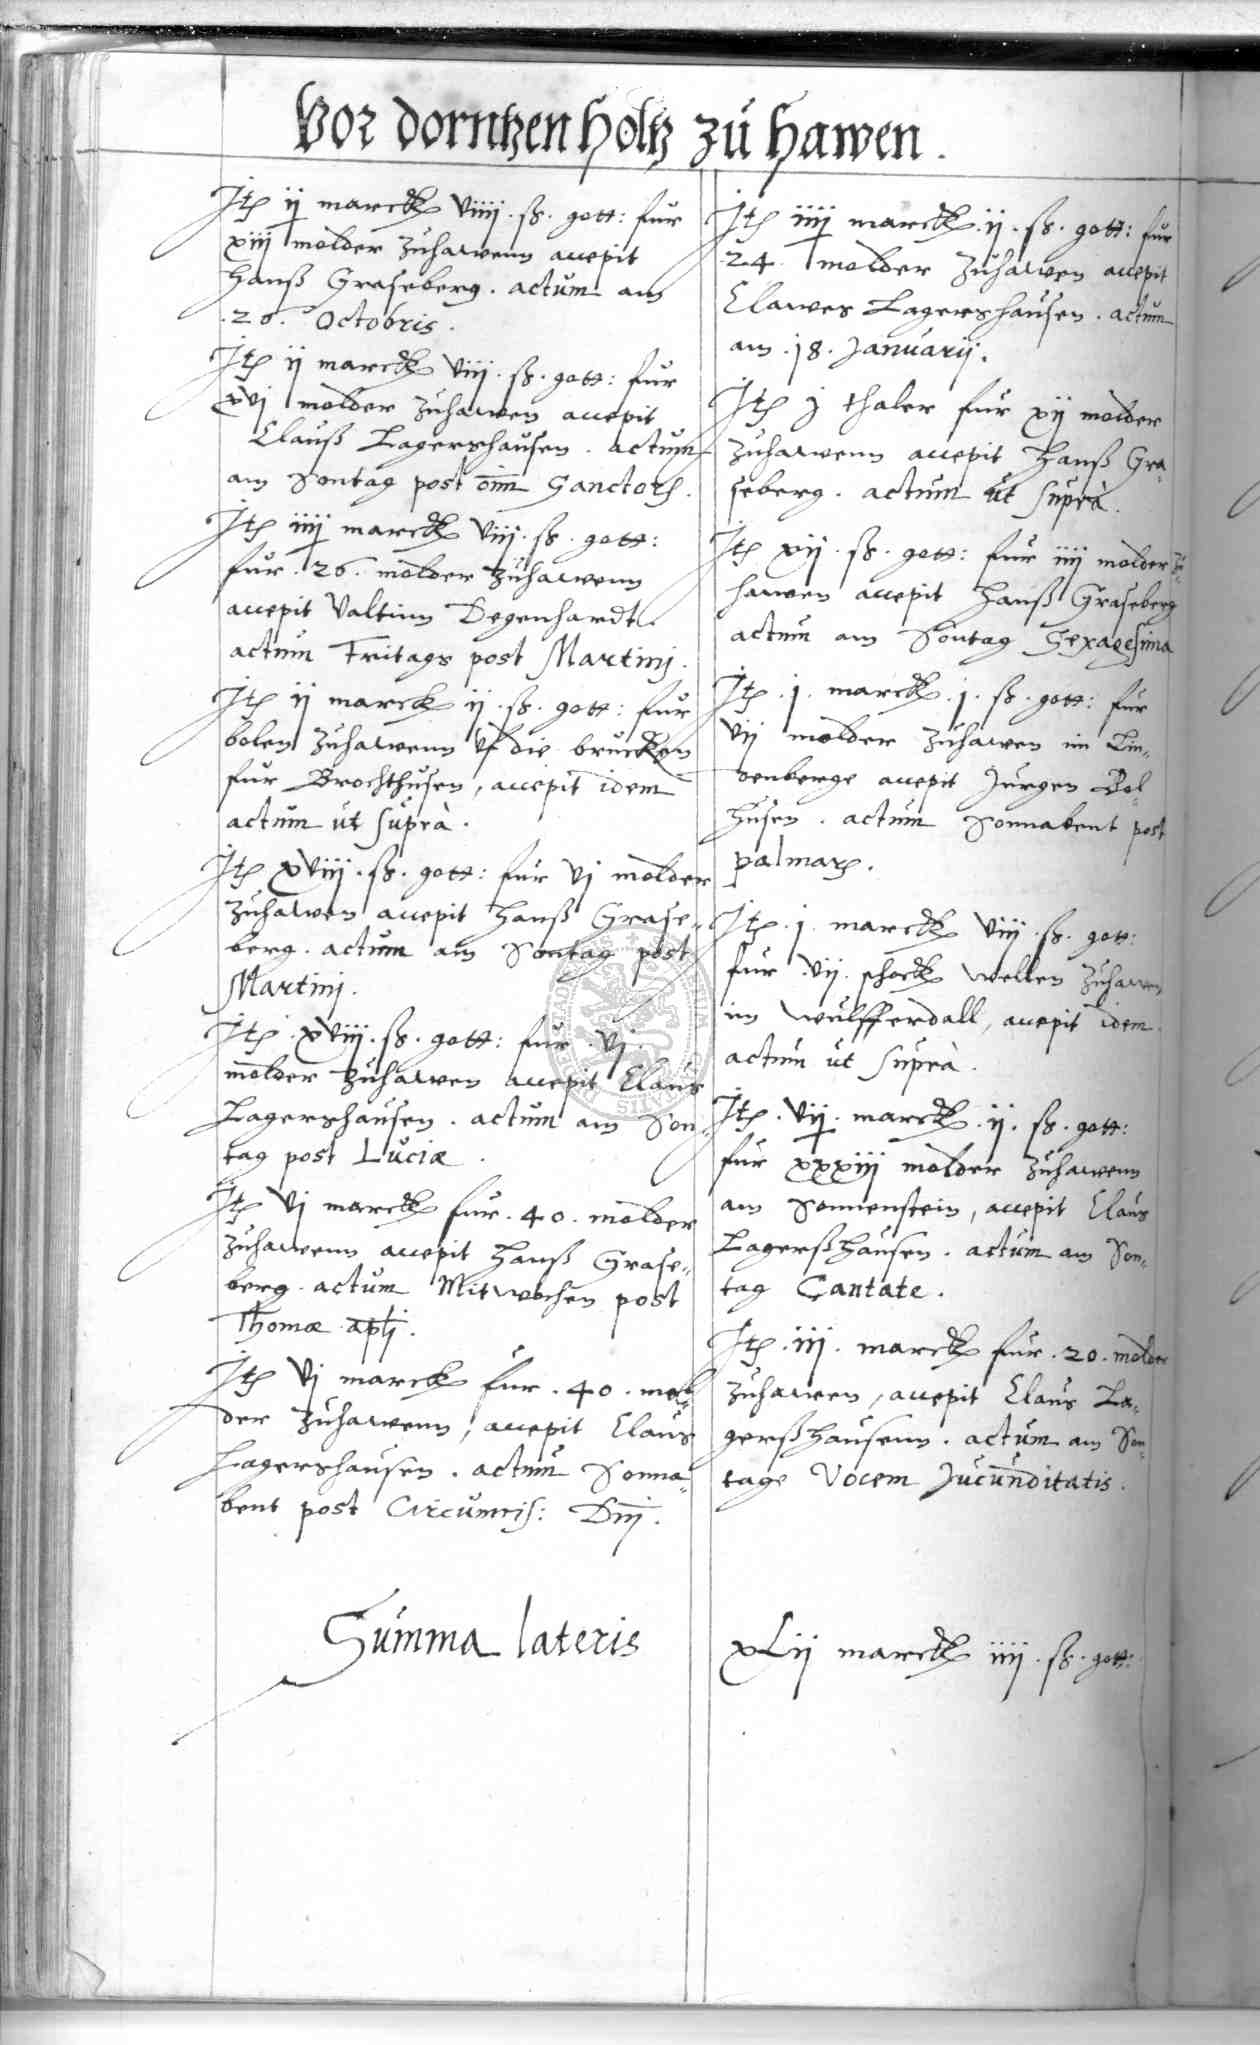 Vor dorntzen Holtz zu Hawen.
Itē ij marck viiij. ß. gott: fur
xiij molder zuhawenn accepit
Hanß Graseberg. actum am
.26. Octobris.
Itē ij marck viij. ß. gott: fur
xvj molder zuhawen accepit
Clauß Lagershausen. actum
am Sontag post om̄ Sanctorū.
Itē iiij marck viij. ß. gott:
fur .26. molder zuhawenn
accepit Valtinn Degenhardt.
actum Fritags post Martinj.
Itē ij marck ij. ß. gott: fur
bolen zuhawenn vf die brucken
fur Brochthusen, accepit idem
actum ut suprà.
Itē xviij. ß. gott: fur vj molder
zuhawen accepit Hanß Grase„
berg. actum am Sontag post
Martinj.
Itē .xviij. ß. gott: fur .vj.
molder zuhawen accepit Claus
Lagershausen. actum am Son„
tag post Luciæ.
Itē vj marck fur .40. molder
zuhawenn accepit Hanß Grase„
berg. actum Mitwochen post
Thomæ apl̄j.
Itē vj marck fur .40. mol„
der zuhawenn, accepit Claus
Lagershausen. actum Sonna„
bent post Circumcis: Dn̄j.
Itē iiij marck .ij. ß. gott: fur
.24. molder zuhawen accepit
Clawes Lagershausen. actum
am .18. Januarij.
Itē j thaler fur xij molder
zuhawenn accepit Hanß Gra„
seberg. actum ut suprà.
Itē xij. ß. gott: fur iiij molder zu„
hawen accepit Hanß Graseberg
actum am Sontag Sexagesima
Itē .j. marck .j. ß. gott: fur
vij molder zuhawen im Lin„
denberge accepit Jurgen Bol„
husen. actum Sonnabent post
palmarū.
Itē .j. marck viij. ß. gott:
fur .vij. schock wellen zuhawen
im Wulfferdall, accepit idem
actum ut suprà.
Itē .vij. marck .ij. ß. gott:
fur xxxiij molder zuhawenn
am Sonnenstein, accepit Claus
Lagerßhausen. actum am Son„
tag Cantate.
Itē .iij. marck fur .20. molder
zuhawen, accepit Claus La„
gerßhausenn. actum am Son„
tage Vocem Jucunditatis.
Summa lateris xLij marck iiij. ß. gott: